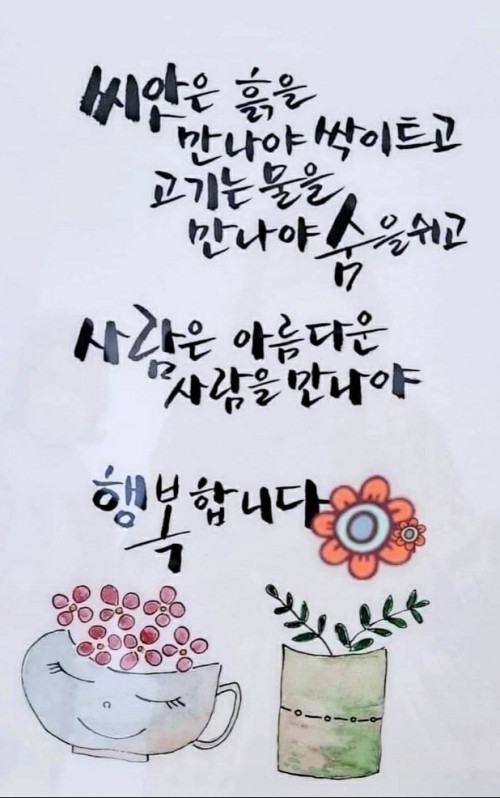 씨앗은 흙을
만나야 싹이트고
고기는 물을
만나야 숨을쉬고
사람은 아름다운
사람을 만나야
행복합니다